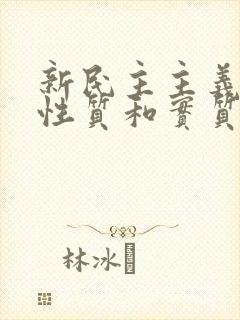 新民主主義
性質和實質
林冰